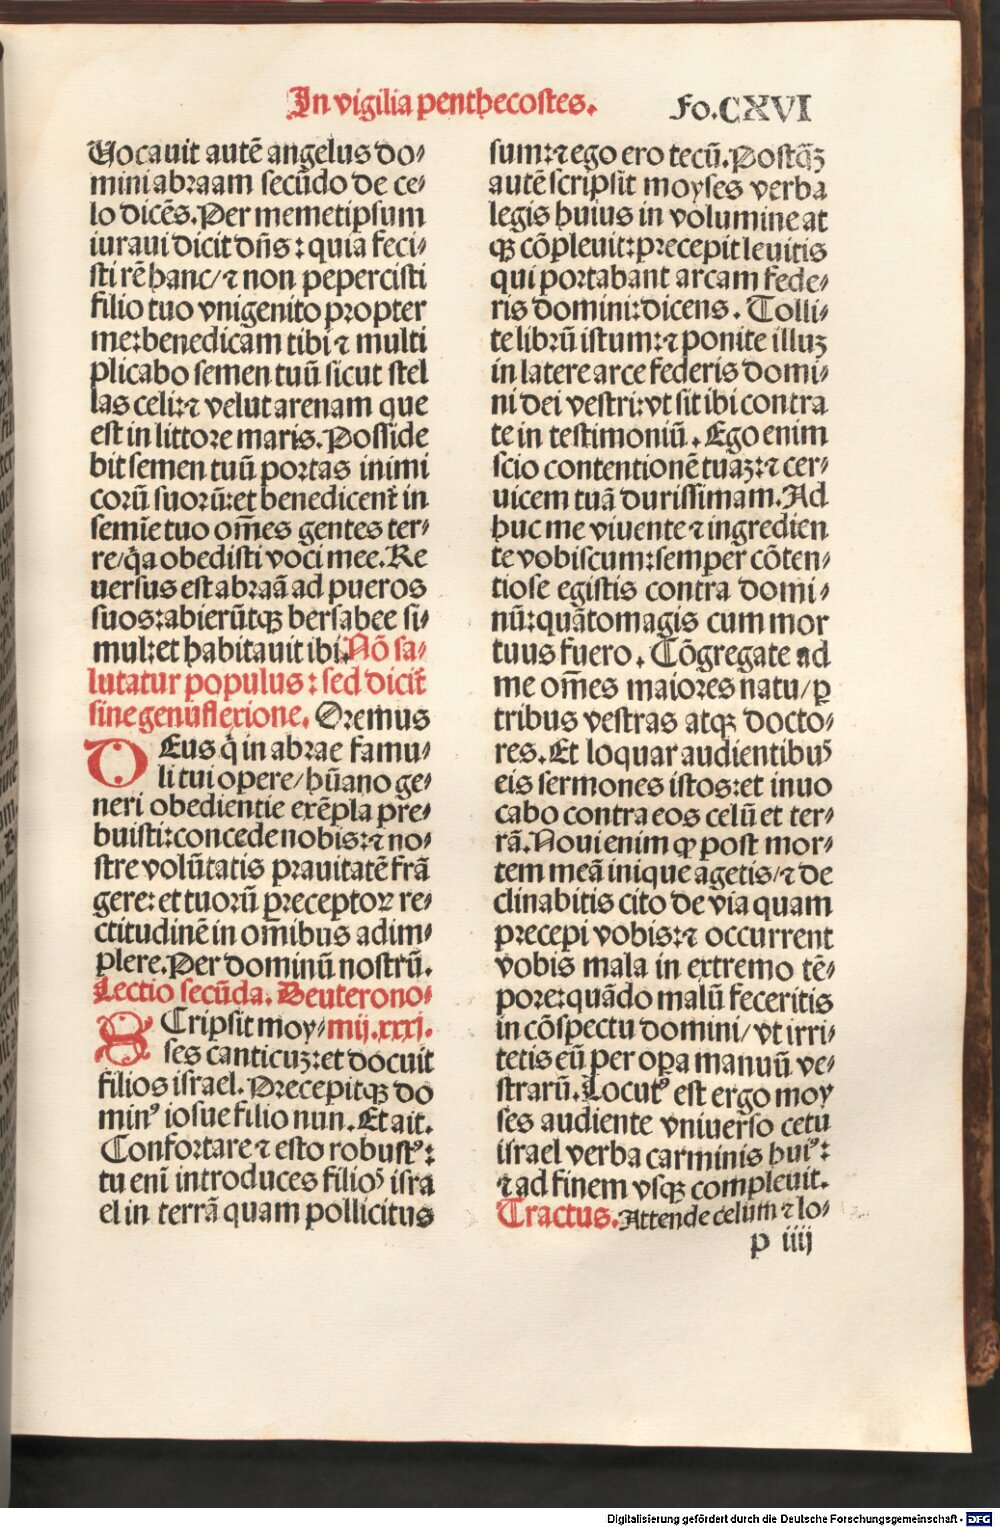 In vigilia penthecostes.
Fo.CXVI
Uocauit autē angelus do⸗
mini abraam secūdo de ce⸗
lo dicēs. Per memetipsum
iuraui dicit dn̄s : quia feci⸗
sti rē hanc/ ⁊ non pepercisti
filio tuo vnigenito propter
me: benedicam tibi ⁊ multi
plicabo semen tuū sicut stel
las celi: ⁊ velut arenam que
est in littore maris. Posside
bit semen tuū portas inimi
corū suorū: et benedicent̄ in
semīe tuo om̄es gentes ter⸗
re/ q̄a obedisti voci mee. Re
uersus est abraā ad pueros
suos: abierūtqꝫ bersabee si⸗
mul: et habitauit ibi. Nō sa⸗
lutatur populus : sed dicit̄
sine genuflexione. Oremus
DEus q̄ in abrae famu⸗
li tui opere/ hūano ge⸗
neri obedientie exēpla pre⸗
buisti: concede nobis: ⁊ no⸗
stre volūtatis prauitatē frā
gere: et tuorū preceptor re⸗
ctitudinē in om̄ibus adim⸗
plere. Per dominū nostrū.
Lectio secūda. Deuterono⸗
SCripsit moy⸗ mij.xxxj.
ses canticuꝫ: et docuit
filios israel. Precepitqꝫ do
minꝰ iosue filio nun. Et ait.
Confortare ⁊ esto robustꝰ:
tu enī introduces filioꝰ isra
el in terrā quam pollicitus
sum: ⁊ ego ero tecū. Postq̄ꝫ
autē scripsit moyses verba
legis huius in volumine at
qꝫ cōpleuit: precepit leuitis
qui portabant arcam fede⸗
ris domini: dicens. Tolli⸗
te librū istum: ⁊ ponite illuꝫ
in latere arce federis domi⸗
ni dei vestri: vt sit ibi contra
te in testimoniū. Ego enim
scio contentionē tuaꝫ: ⁊ cer⸗
uicem tuā durissimam. Ad
huc me viuente ⁊ ingredien
te vobiscum: semper cōten⸗
tiose egistis contra domi⸗
nū: quātomagis cum mor
tuus fuero. Cōgregate ad
me om̄es maiores natu/ ꝑ
tribus vestras atqꝫ docto⸗
res. Et loquar audientibuꝰ
eis sermones istos: et inuo
cabo contra eos celū et ter⸗
rā. Noui enim ꝙ post mor⸗
tem meā inique agetis/ ⁊ de
clinabitis cito de via quam
precepi vobis: ⁊ occurrent
vobis mala in extremo tē⸗
pore: quādo malū feceritis
in cōspectu domini/ vt irri⸗
tetis eū per oꝑa manuū ve⸗
strarū. Locutꝰ est ergo moy
ses audiente vniuerso cetu
israel verba carminis huiꝰ:
⁊ ad finem vsqꝫ compleuit.
Tractus. Attende celum ⁊ lo⸗
p iiij
Digitalisierung gefördert durch die Deutsche Forschungsgemeinschaft - DFG